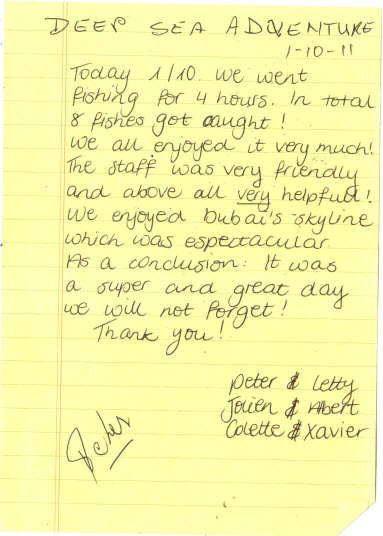 DEEP SEA ADVENTURE
1-10-11
Today 1/10. we went
fishing for 4 hours. In total
8 fishes got caught!
We all enjoyed it very much!
The staff was very friendly
and above all very helpfull!
We enjoyed Dubai's skyline
which was espectacular
As a conclusion: It was
a super and great day
we will not forget!
Thank you!
Peter & Letty
Jolien & Albert
Colette & Xavier
Peter